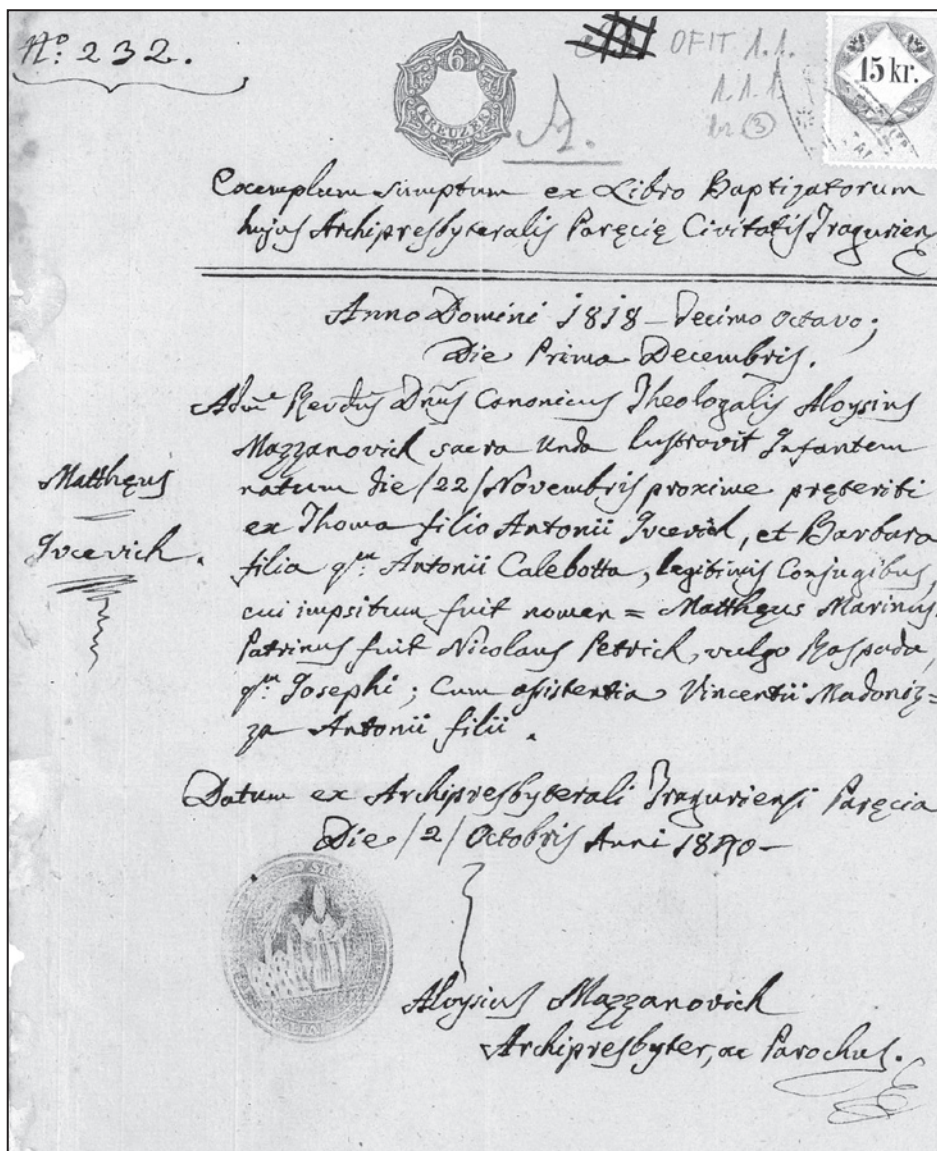 No. 232.
OFIT 1.1.
1.1.1.
br. 3
6
KREUZER
15 kr.
A.
Exemplum sumptum ex Libro Baptizatorum
hujus Archipresbyteralis Paręcię Civitatis Tragurien
Anno Domini 1818 – Decimo Octavo;
Die Prima Decembris.
Admᵉ Revdus Dnus Canonicus Theologalis Aloysius
Mazzanovich sacra unda lustravit Infantem
natum die /22/ Novembris proxime pręteriti
ex Thoma filio Antonii Ivcevich, et Barbara
filia qm: Antonii Calebotta, legitimis Conjugibus,
cui impsitum fuit nomen = Matthęus Marinus.
Patrinus fuit Nicolaus Petrich, vulgo Raspada,
qm: Josephi; Cum assistentia Vincentii Madoniz=
za Antonii filii.
Matthęus
Ivcevich.
Datum ex Archipresbyterali Traguriensi Paręcia
Die /2/ Octobris Anni 1870 –
Aloysius Mazzanovich
Archipresbyter, ac Parochus.